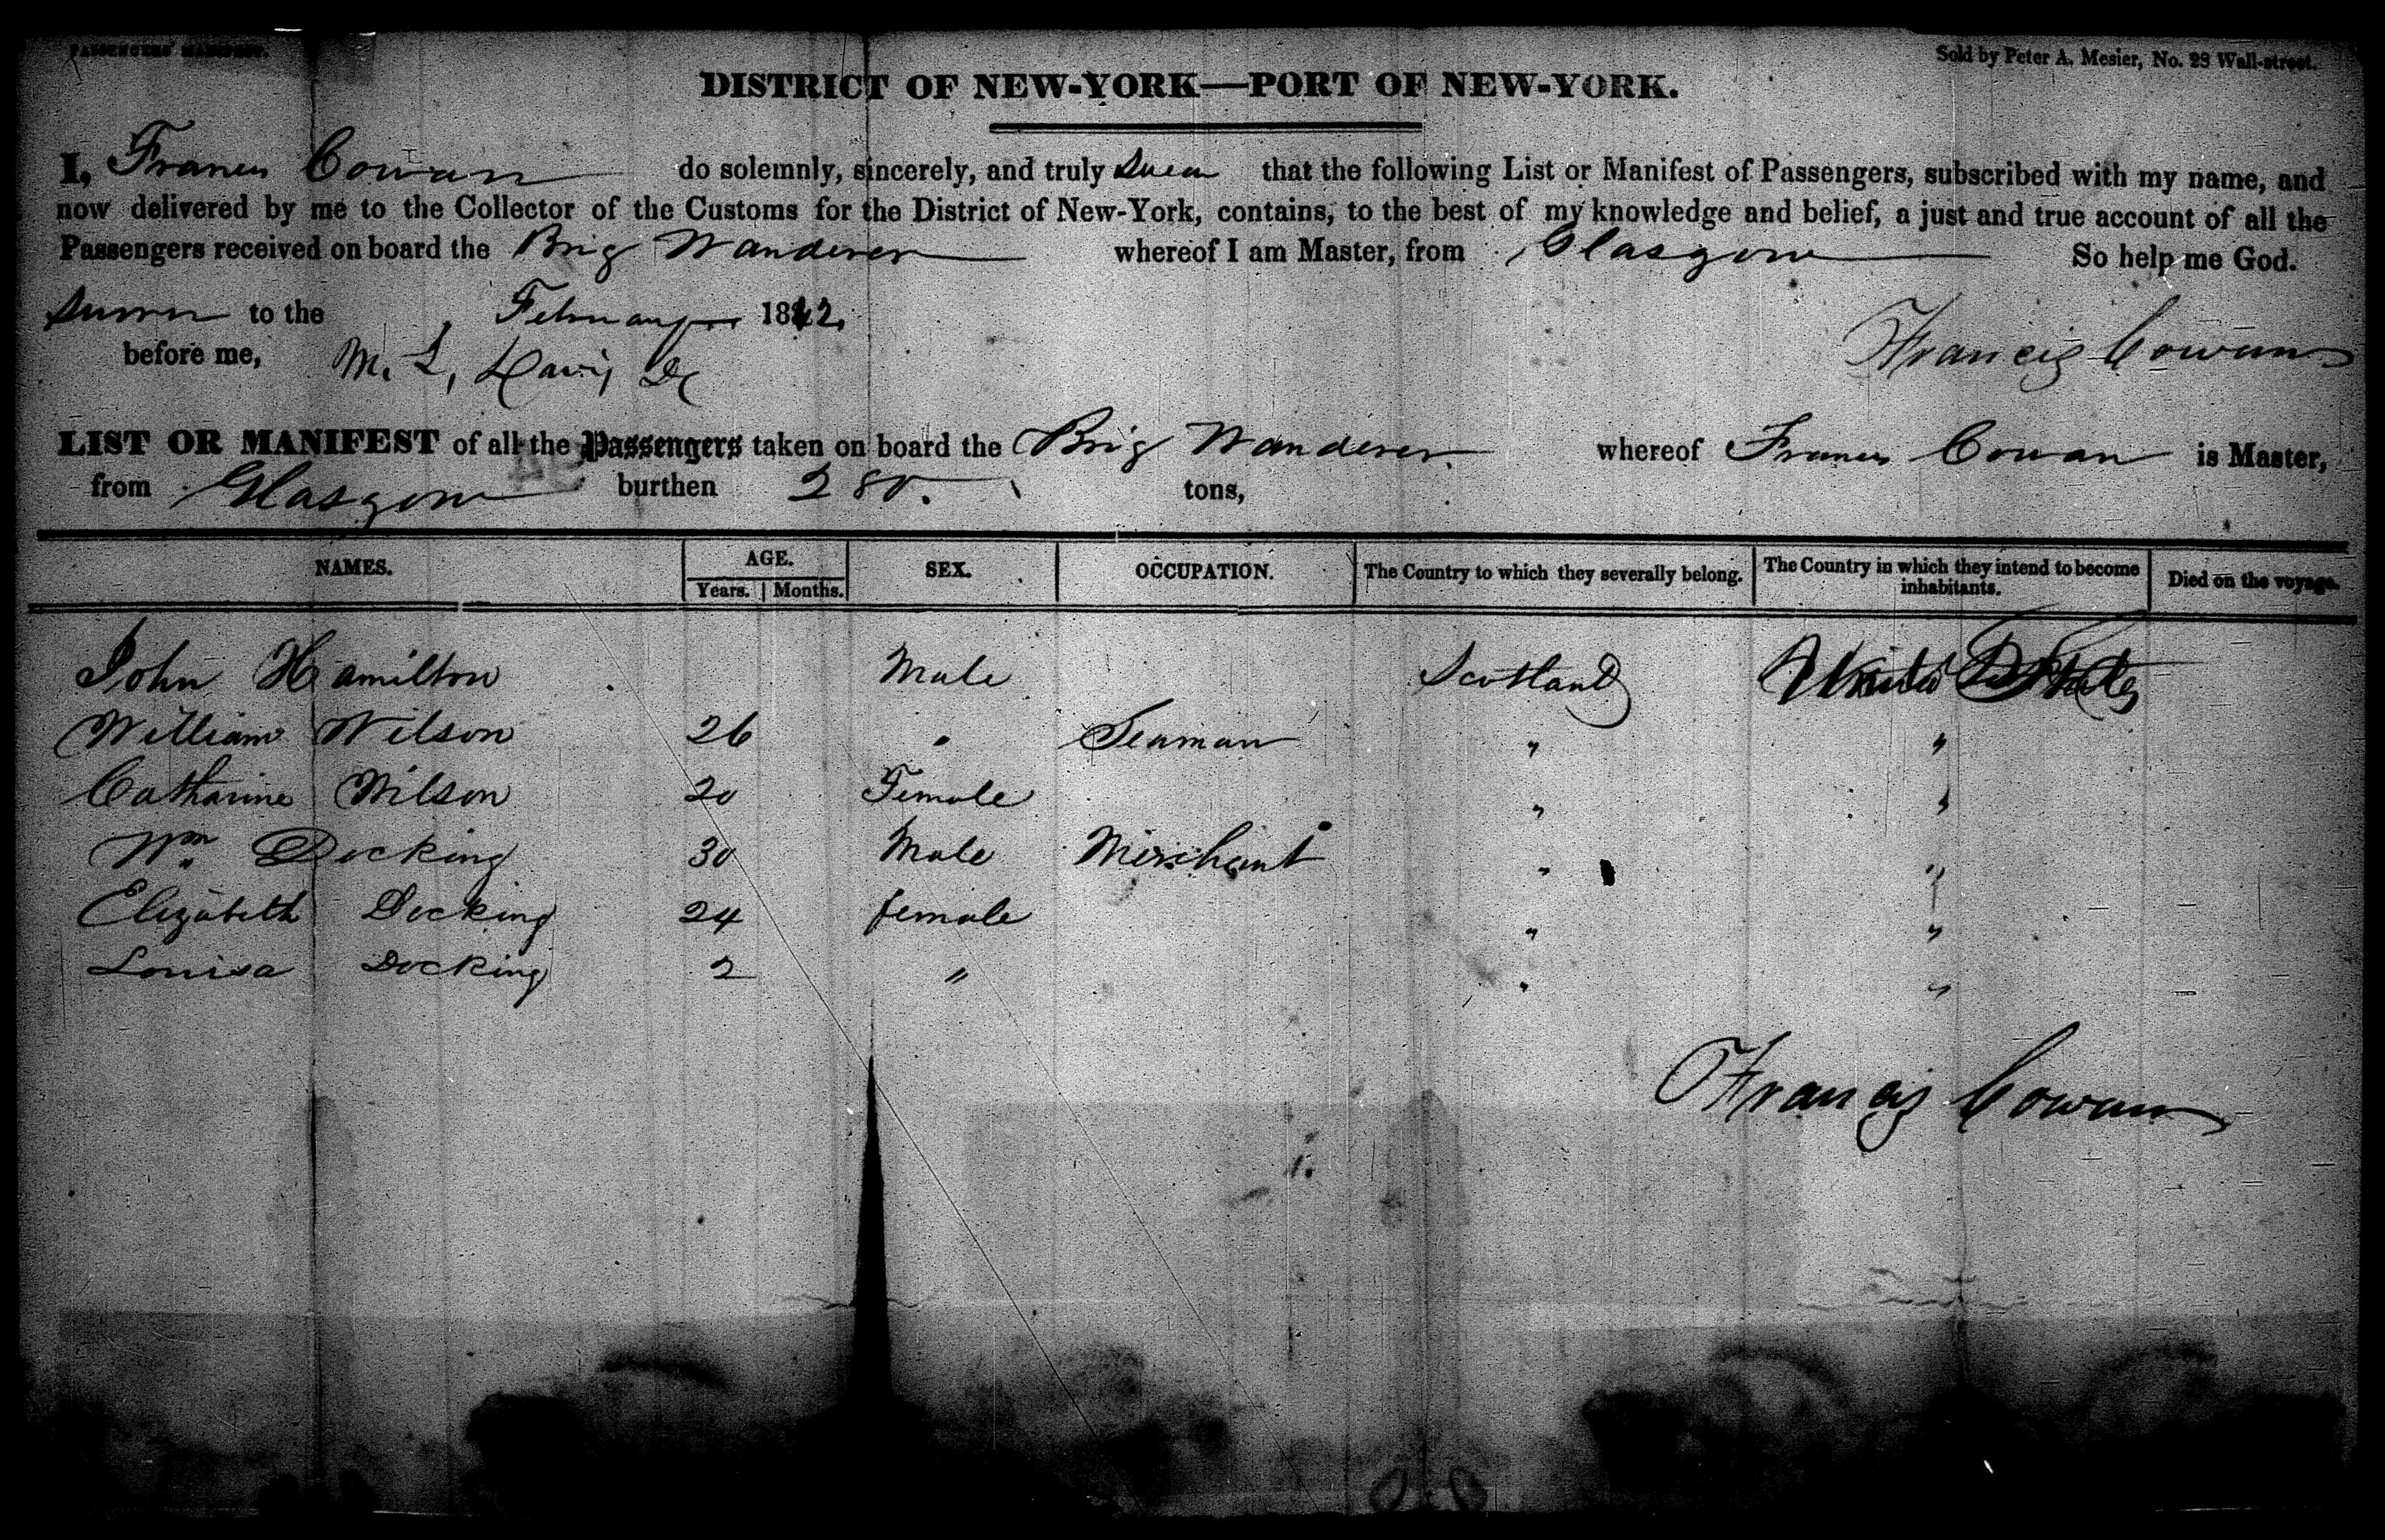 PASSENGERS' MANIFEST.
Sold by Peter A. Mesier, No. 28 Wall-street.
DISTRICT OF NEW-YORK—PORT OF NEW-YORK.
I, Francis Cowan do solemnly, sincerely, and truly swear that the following List or Manifest of Passengers, subscribed with my name, and
now delivered by me to the Collector of the Customs for the District of New-York, contains, to the best of my knowledge and belief, a just and true account of all the
Passengers received on board the Brig Wanderer whereof I am Master, from Glasgow So help me God.
Sworn to the February 1842.
before me, M. L. Davis Francis Cowan
LIST OR MANIFEST of all the Passengers taken on board the Brig Wanderer whereof Francis Cowan is Master,
from Glasgow burthen 280. tons,
NAMES. AGE. SEX. OCCUPATION. The Country to which they severally belong. The Country in which they intend to become inhabitants. Died on the voyage.
Years. Months.
John Hamilton Male Scotland United States
William Wilson 26 " Seaman " "
Catharine Wilson 20 Female " "
Wm Docking 30 Male Merchant " "
Elizabeth Docking 24 female " "
Louisa Docking 2 " " "
Francis Cowan